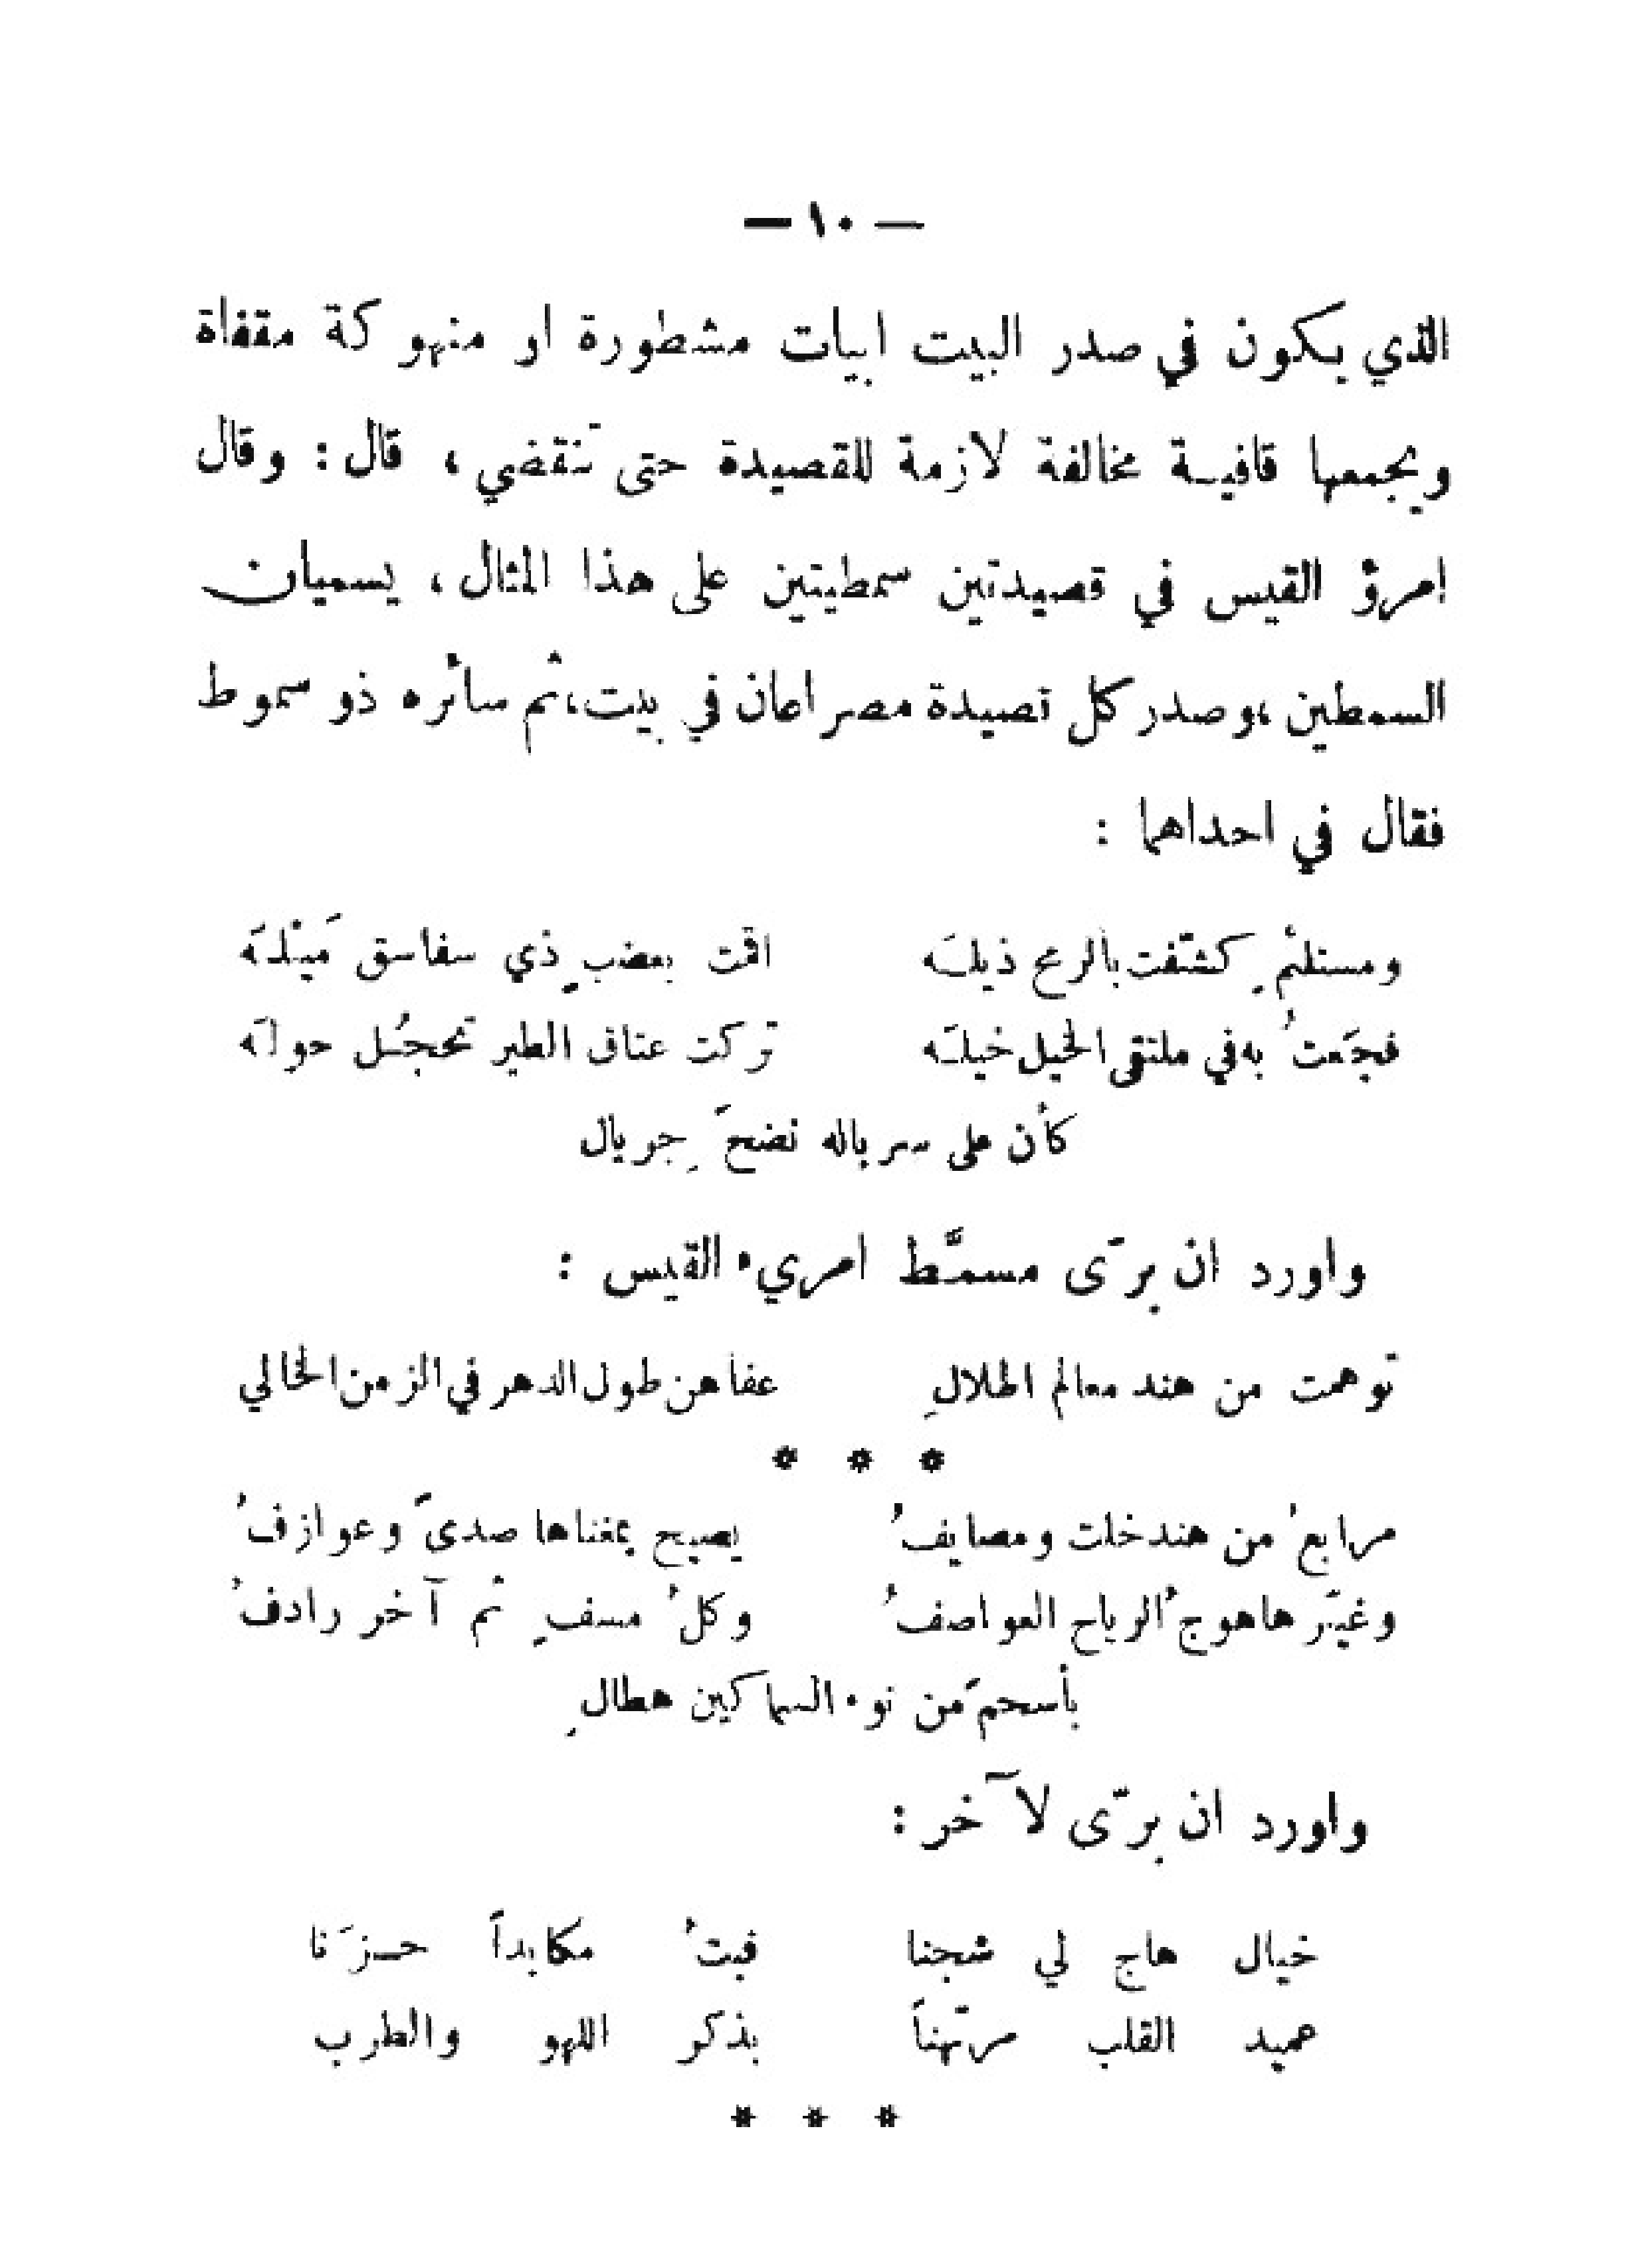 — ١٠ —
الذي يكون في صدر البيت ابيات مشطورة او منهوكة مقفاة
ويجمعها قافيـة مخالفة لازمة للقصيدة حتى تَنقضي ، قال : وقال
امرؤ القيس في قصيدتين سمطيتين على هذا المثال ، يسميان
السمطين ، وصدر كل قصيدة مصراعان في بيت ، ثم سائره ذو سموط
فقال في احداهما :
ومستلئمٍ كشّفت بالرمح ذيلـَه اقمت بعضبٍ ذي سفاسق مَيْلـَه
فجَعتُ به في ملتقى الخيل خيلـَه تركت عتاق الطير تَحجُـل حولـَه
كأن على سرباله نضحَ جِريال
واورد ان برّى مسمـَّط امريء القيس :
توهمت من هند معالم اطلالِ عفاهن طول الدهر في الزمن الخالي
* * *
مرابعُ من هند خلت ومصايفُ يصيح بمغناها صدىً وعوازفُ
وغيّرها هوجُ الرياح العواصفُ وكلُ مسفٍ ثم آخر رادفُ
بأسحمَ من نوء السماكين هطالِ
واورد ان برّى لآخر :
خيال هاج لي شجنا فبتُ مكابداً حـزَنا
عميد القلب مرتّهناً بذكر اللهو والطرب
* * *